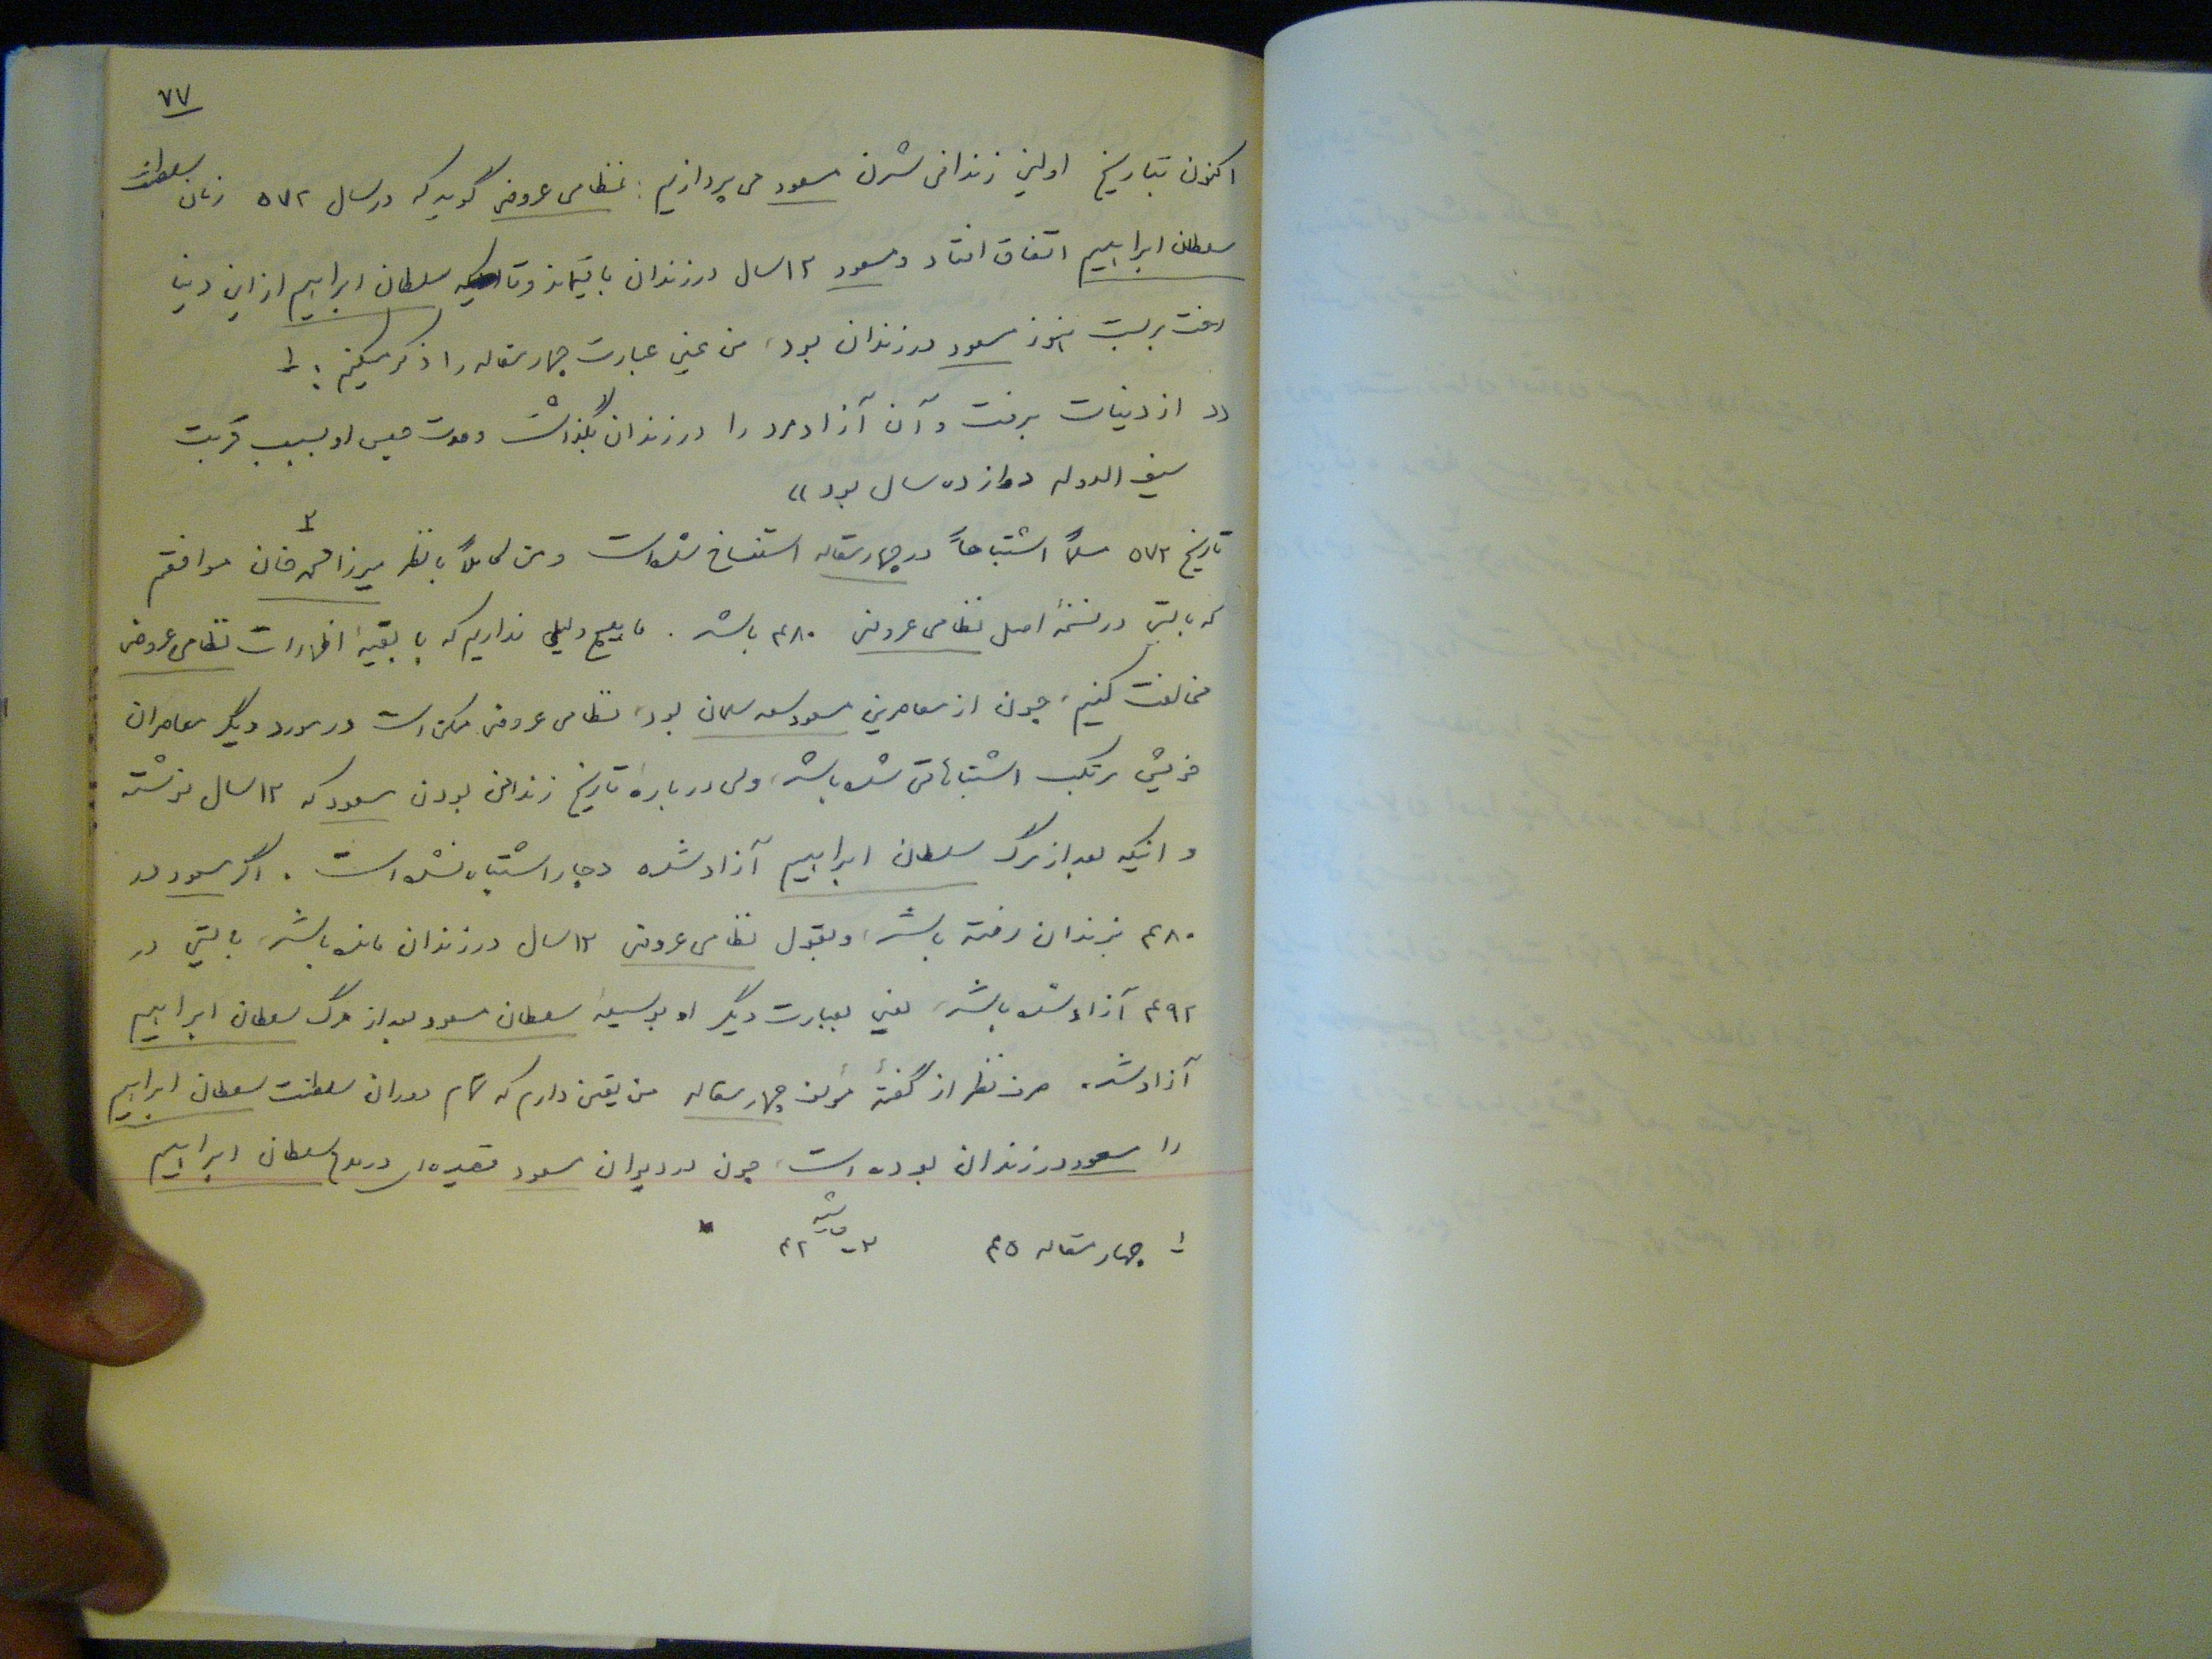 ۷۷
اکنون بتاریخ اولین زندانی شدن مسعود می پردازیم : نظامی عروضی گوید که در سال ۵۷۲ زمان سلطنت
سلطان ابراهیم اتفاق افتاد و مسعود ۱۲ سال در زندان باقیماند و تا سلطان ابراهیم از این دنیا
رخت بربست هنوز مسعود در زندان بود، من عین عبارت چهار مقاله را ذکر میکنم : ۱
«از دنیات برفت و آن آزادمرد را در زندان بگذاشت و مدت حبس او بسبب قربت
سیف الدوله دوازده سال بود»
تاریخ ۵۷۲ مسلماً اشتباهاً در چهار مقاله استنساخ شده است و من کاملاً با نظر میرزا محمد خان ۲ موافقم
که بایستی در نسخهٔ اصل نظامی عروضی ۴۸۰ باشد . ما هیچ دلیلی نداریم که با بقیهٔ اظهارات نظامی عروضی
مخالفت کنیم، چون از معاصرین مسعود سعد سلمان بود، نظامی عروضی ممکن است در مورد دیگر معاصران
خویش مرتکب اشتباهاتی شده باشد، ولی درباره تاریخ زندانی بودن مسعود که ۱۲ سال نوشته
و اینکه بعد از مرگ سلطان ابراهیم آزاد شده دچار اشتباه نشده است . اگر مسعود در
۴۸۰ بزندان رفته باشد، و بقول نظامی عروضی ۱۲ سال در زندان مانده باشد، بایستی در
۴۹۲ آزاد شده باشد، یعنی بعبارت دیگر او بوسیلهٔ سلطان مسعود بعد از مرگ سلطان ابراهیم
آزاد شد. صرف نظر از گفتهٔ مؤلف چهار مقاله من یقین دارم که تمام دوران سلطنت سلطان ابراهیم
را مسعود در زندان بوده است، چون در دیوان مسعود قصیده ای در مدح سلطان ابراهیم
۱ چهار مقاله ۴۵ ۲ـ حاشیه ۴۲